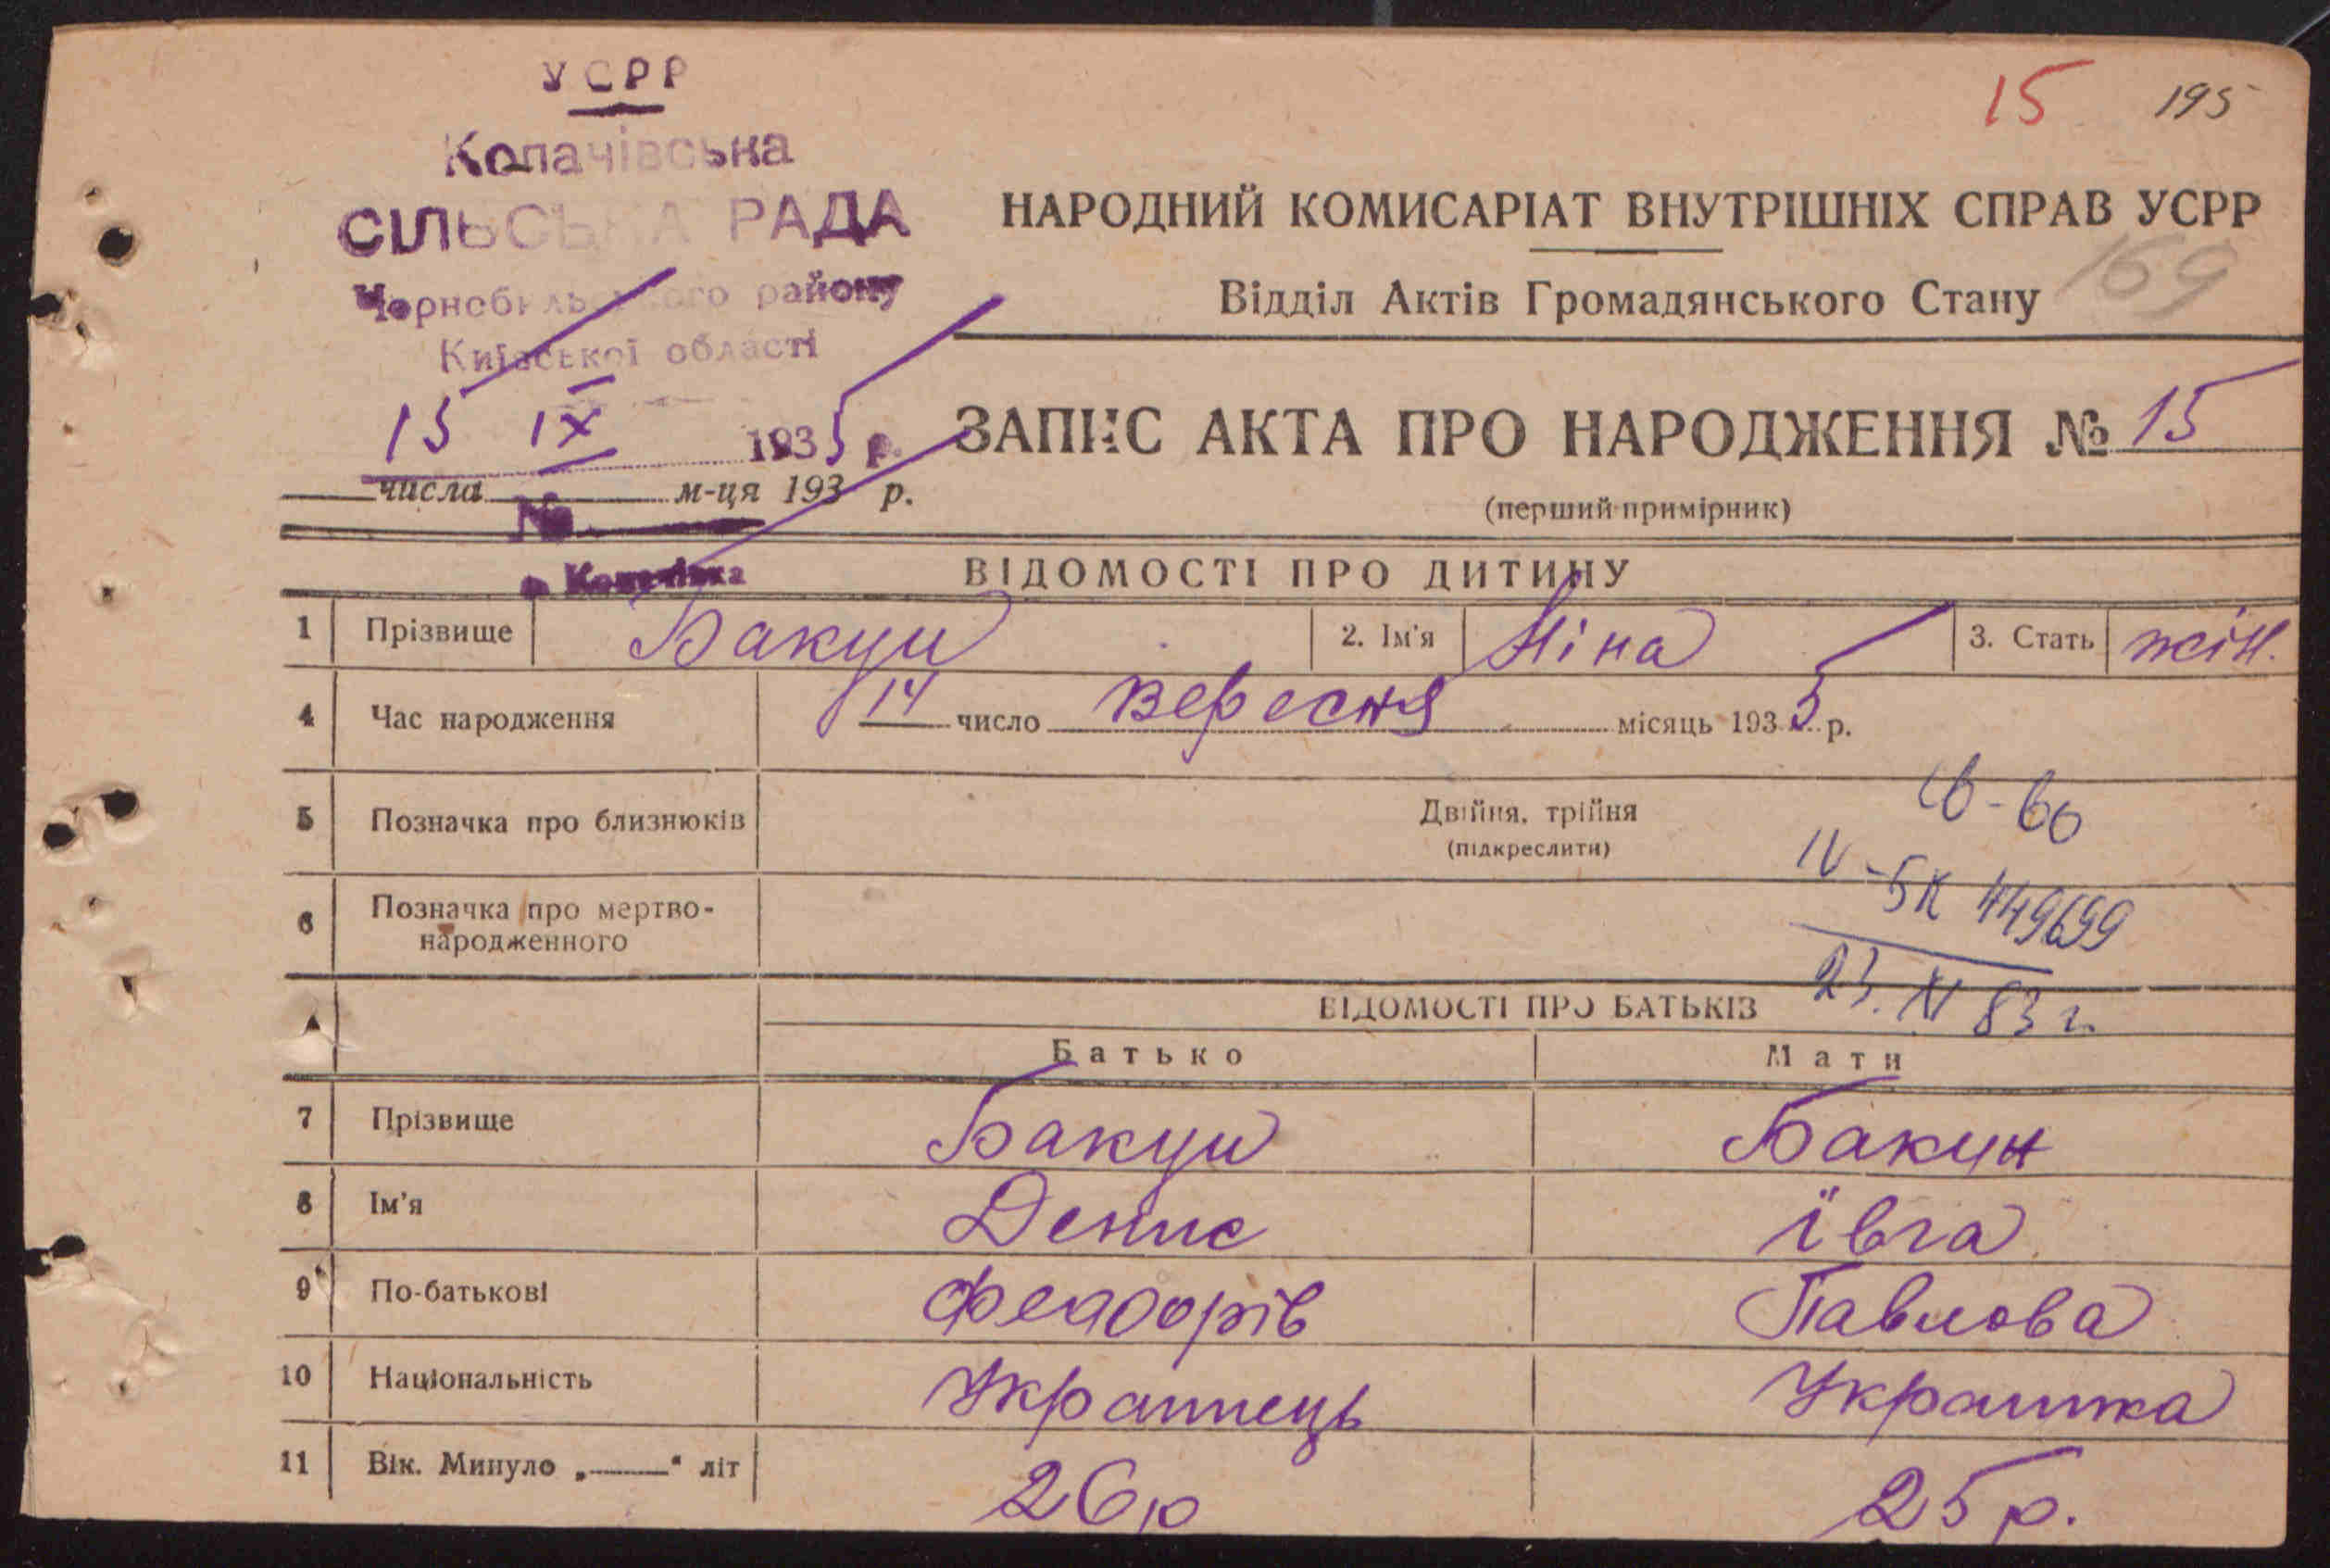 УСРР
Копачівська
СІЛЬСЬКА РАДА
Чорнобильського району
Київської області
15 IX 1935 р.
числа м-ця 193 р.
№
15 195
НАРОДНИЙ КОМИСАРІАТ ВНУТРІШНІХ СПРАВ УСРР
169
Відділ Актів Громадянського Стану
ЗАПИС АКТА ПРО НАРОДЖЕННЯ № 15
(перший примірник)
ВІДОМОСТІ ПРО ДИТИНУ
1 Прізвище Бакун 2. Ім'я Ніна 3. Стать жін.
4 Час народження 14 число вересня місяць 1935 р.
5 Позначка про близнюків Двійня, трійня
(підкреслити)
6 Позначка про мертво-
народженного
IV-БК 449699
23. XI 83 г.
ВІДОМОСТІ ПРО БАТЬКІВ
Батько Мати
7 Прізвище Бакун Бакун
8 Ім'я Денис Ївга
9 По-батькові Федорів Павлова
10 Національність Українець Українка
11 Вік. Минуло „——“ літ 26 р 25 р.